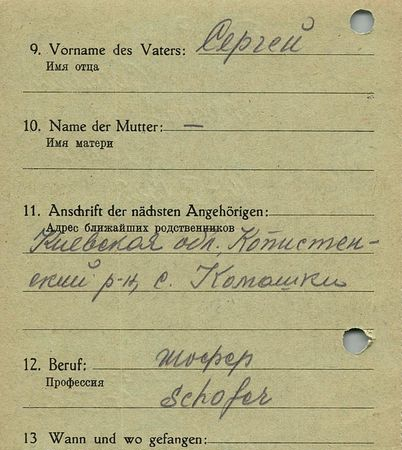 9. Vorname des Vaters: Сергей
Имя отца
10. Name der Mutter: —
Имя матери
11. Anschrift der nächsten Angehörigen:
Адрес ближайших родственников
Киевская обл., Копистен-
ский р-н, с. Комашки
12. Beruf: шофер
Профессия
Schofer
13 Wann und wo gefangen: